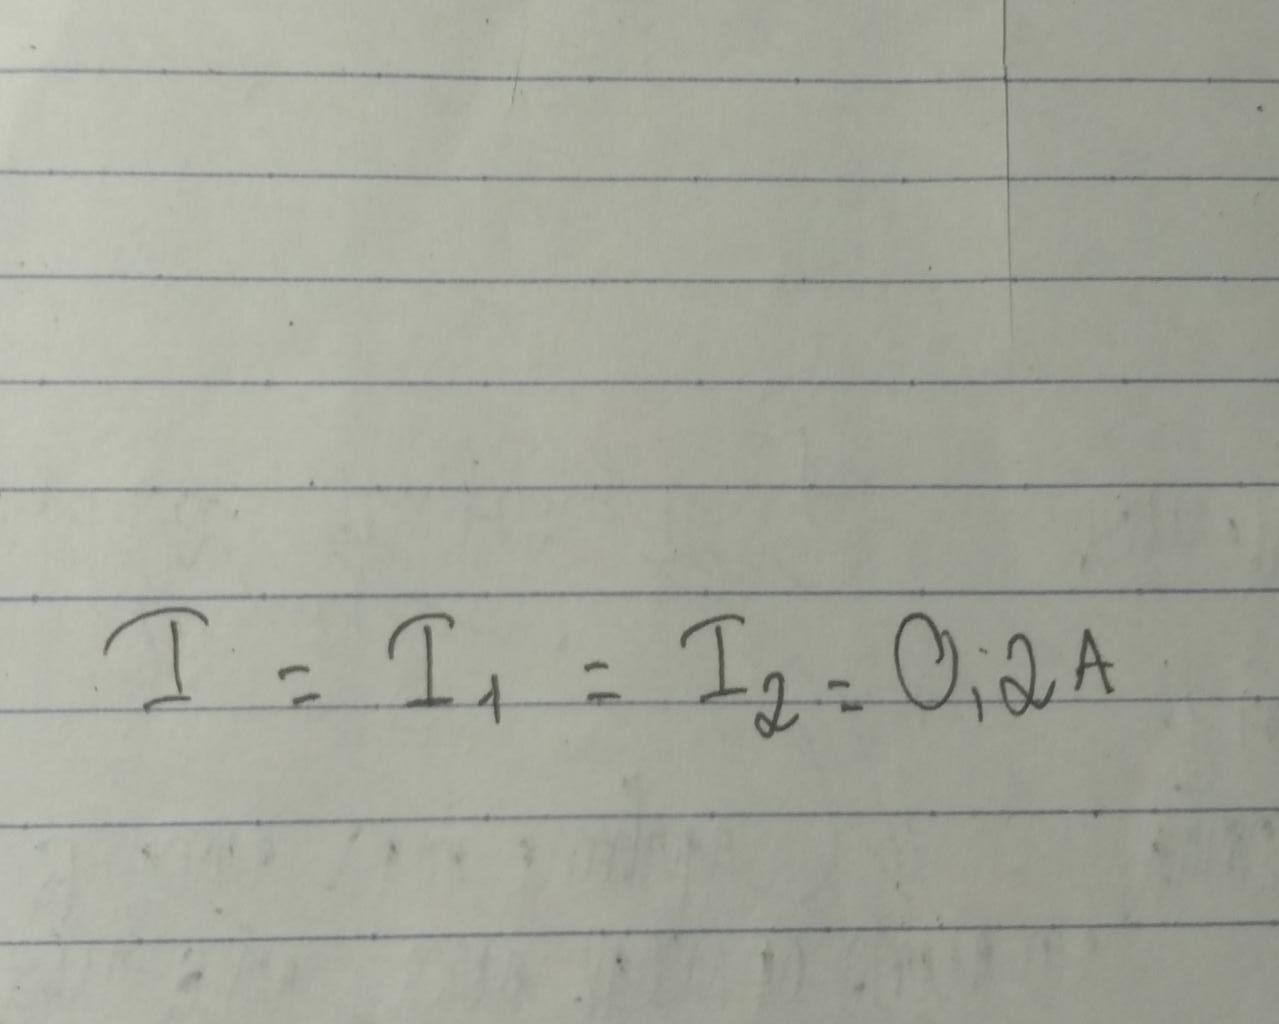 I = I₁ = I₂ = 0,2 A